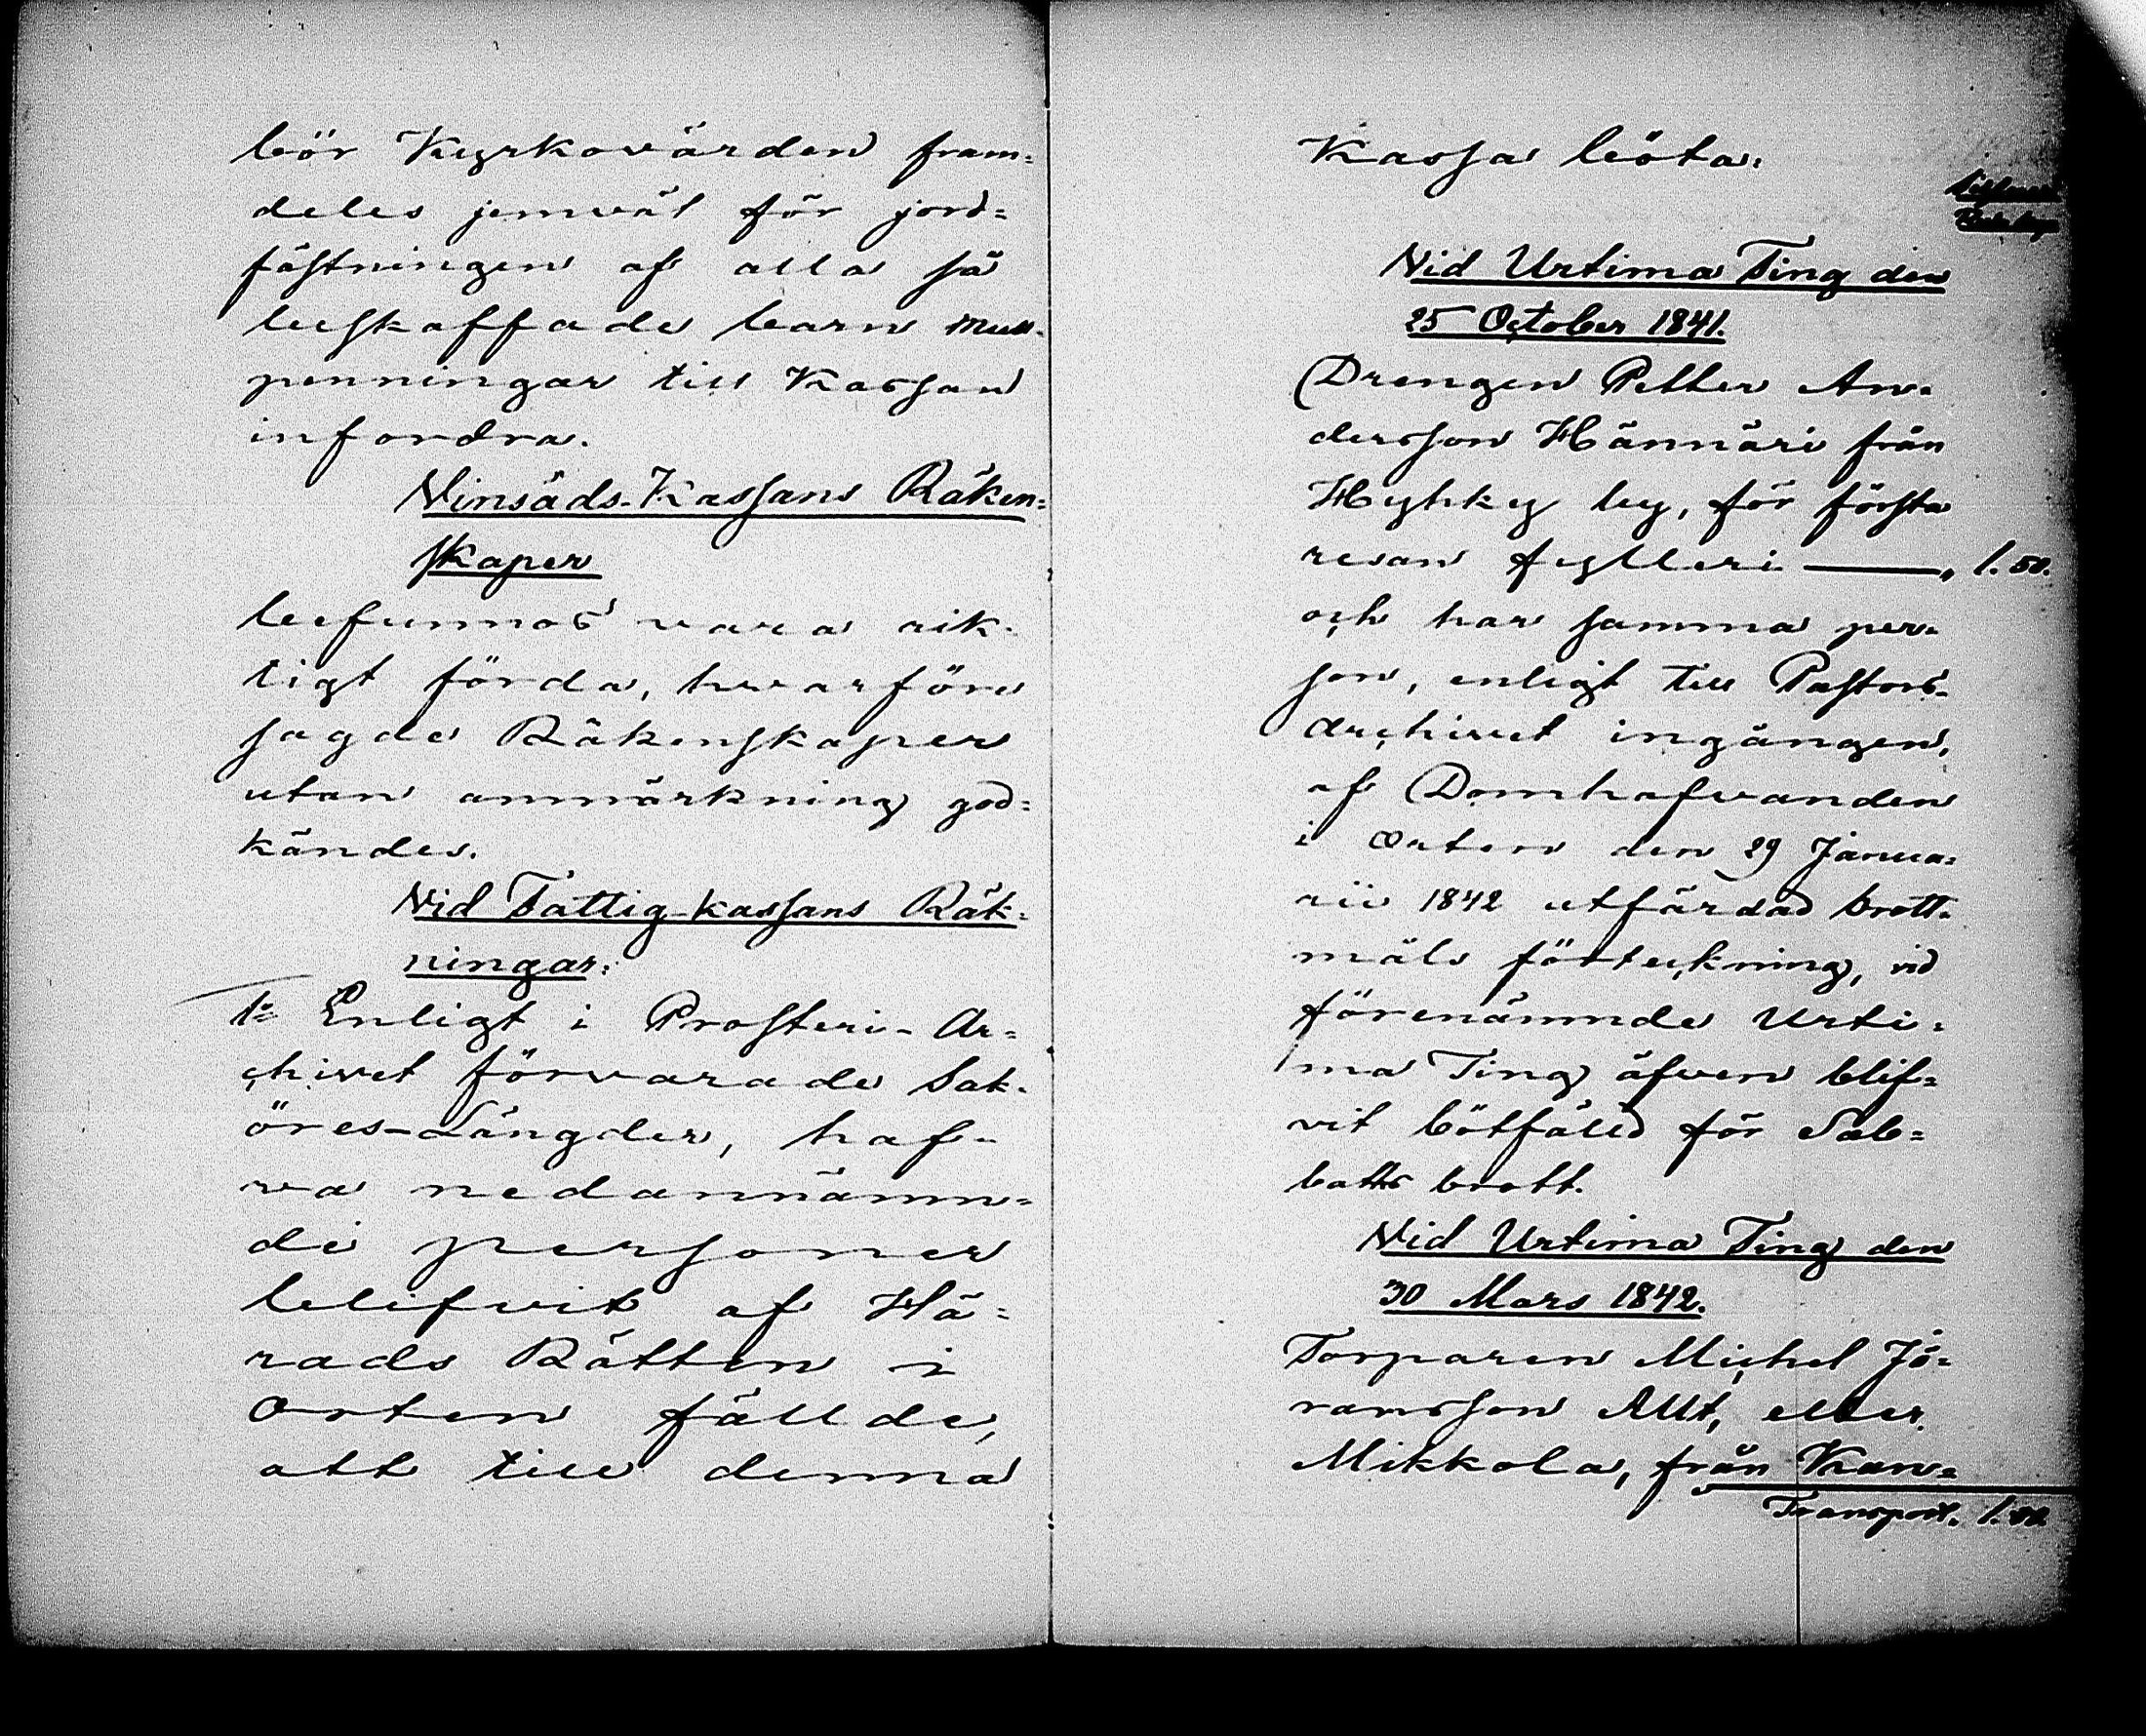 bör Kyrkovärden fram=
deles jemväl för jord=
fästningen af alla så
beskaffade barn mull-
penningar till Kassan
infordra.
Vinsäds-Kassans Räken=
skaper
befunnos vara rik-
tigt förda, hvarföre
sagde Räkenskaper
utan anmärkning god=
kändes.
Vid Fattig-kassans Räk-
ningar:
1o Enligt i Prosteri-Ar=
chivet förvarade Sak-
öres-Längder, haf-
va nedannämn=
de personer
blifvit af Hä=
rads Rätten i
Orten fällde,
att till denna
Kassa böta:
Vid Urtima Ting den
25 October 1841.
Drengen Petter An=
dersson Hännäri från
Hyhky by, för första
resan fylleri ——— 1.50.
och har samma per=
son, enligt till Pastors-
Archivet ingången,
af Domhafvanden
i Orten den 29 Janua=
rii 1842 utfärdad brott-
måls förteckning, vid
förenämnde Urti=
ma Ting äfven blif=
vit bötfälld för Sab=
baths brott.
Vid Urtima Ting den
30 Mars 1842.
Torparen Michel Jö=
ransson Allt, eller
Mikkola, från Kan=
Transport. 1.50.